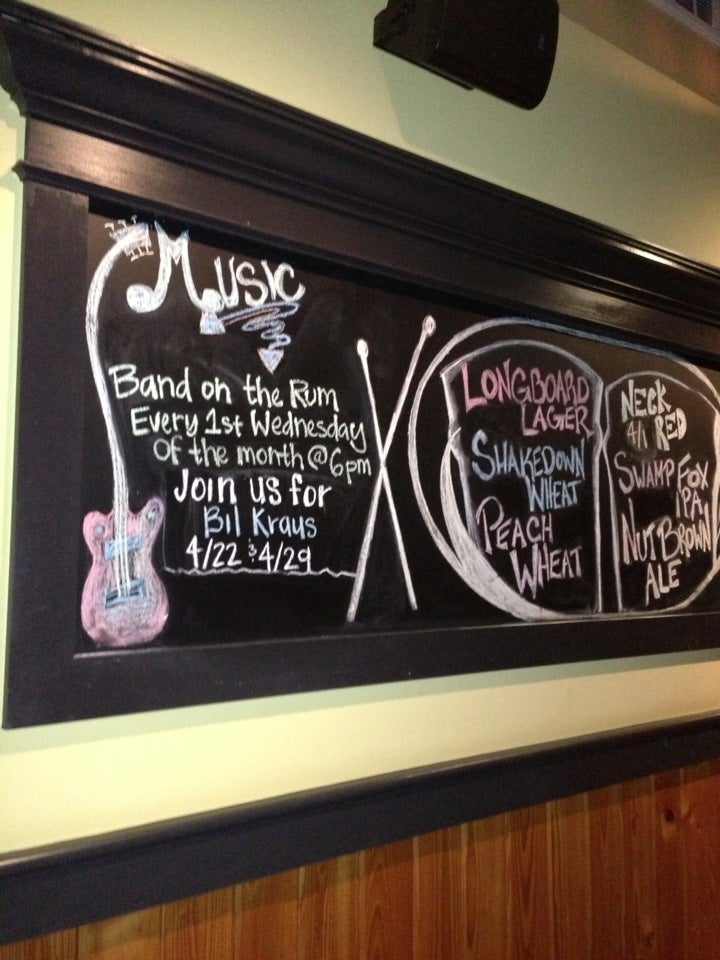 Music
Band on the Rum
Every 1st Wednesday
of the month @ 6pm
Join us for
Bil Kraus
4/22 & 4/29
LONGBOARD
LAGER
SHAKEDOWN
WHEAT
PEACH
WHEAT
NECK
RED
SWAMP FOX
IPA
NUT BROWN
ALE